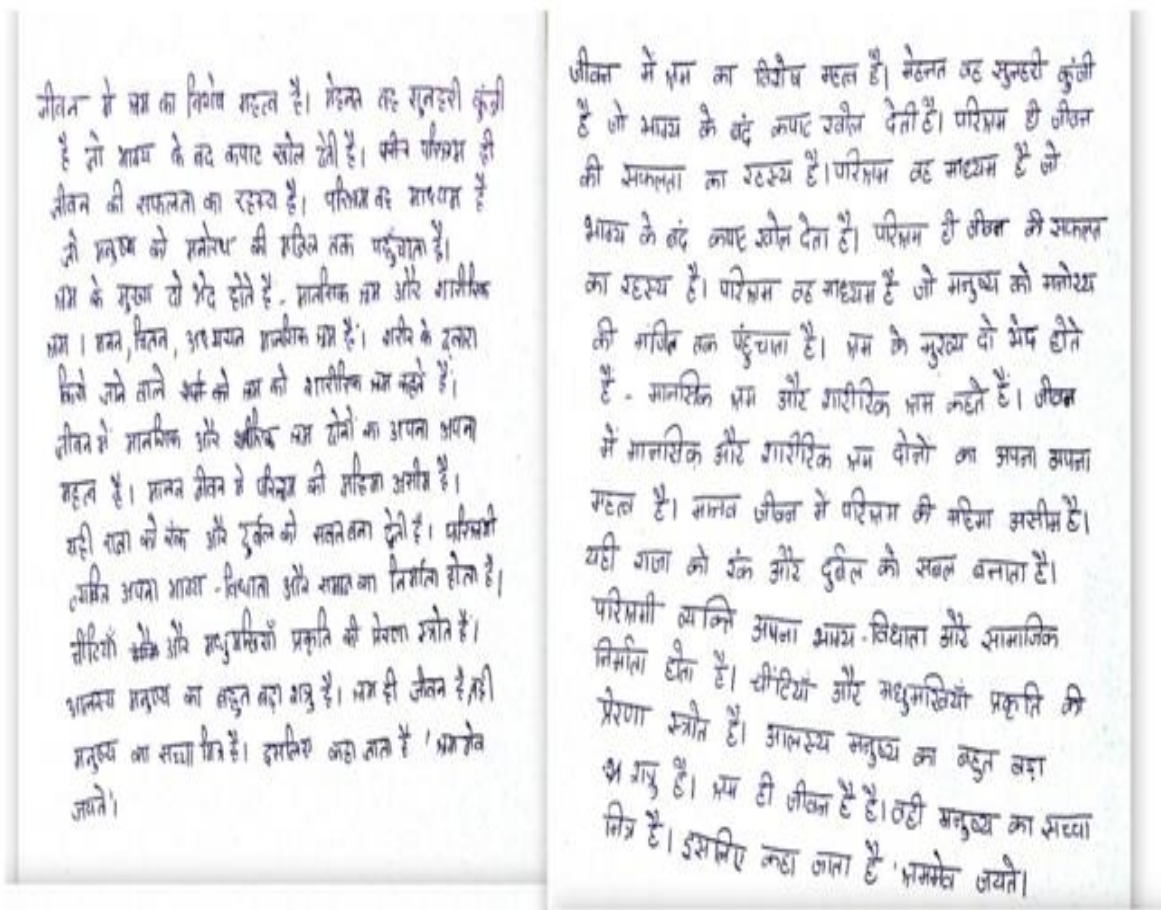 जीवन में श्रम का विशेष महत्व है। मेहनत वह सुनहरी कुंजी
है जो भाग्य के बंद कपाट खोल देती है। परिश्रम ही
जीवन की सफलता का रहस्य है। परिश्रम वह माध्यम है
जो मनुष्य को मनोरथ की मंजिल तक पहुँचाता है।
श्रम के मुख्य दो भेद होते है - मानसिक श्रम और शारीरिक
श्रम। मनन, चिंतन, अध्ययन मानसिक श्रम है। शरीर के द्वारा
किये जाने वाले श्रम को शारीरिक श्रम कहते हैं।
जीवन में मानसिक और शारीरिक श्रम दोनों का अपना अपना
महत्व है। मानव जीवन में परिश्रम की महिमा असीम है।
यही राजा को रंक और दुर्बल को सबल बना देती है। परिश्रमी
व्यक्ति अपना भाग्य-विधाता और समाज का निर्माता होता है।
चींटियाँ और मधुमक्खियाँ प्रकृति की प्रेरणा स्त्रोत हैं।
आलस्य मनुष्य का बहुत बड़ा शत्रु है। श्रम ही जीवन है वही
मनुष्य का सच्चा मित्र है। इसलिए कहा जाता है 'श्रममेव
जयते'।
जीवन में श्रम का विशेष महत्व है। मेहनत वह सुनहरी कुंजी
है जो भाग्य के बंद कपाट खोल देती है। परिश्रम ही जीवन
की सफलता का रहस्य है। परिश्रम वह माध्यम है जो
भाग्य के बंद कपाट खोल देता है। परिश्रम ही जीवन की सफलता
का रहस्य है। परिश्रम वह माध्यम है जो मनुष्य को मनोरथ
की मंजिल तक पहुंचाता है। श्रम के मुख्य दो भेद होते
है - मानसिक श्रम और शारीरिक श्रम कहते हैं। जीवन
में मानसिक और शारीरिक श्रम दोनों का अपना अपना
महत्व है। मानव जीवन में परिश्रम की महिमा असीम है।
यही राजा को रंक और दुर्बल को सबल बनाता है।
परिश्रमी व्यक्ति अपना भाग्य-विधाता और सामाजिक
निर्माता होता है। चींटियाँ और मधुमखियाँ प्रकृति की
प्रेरणा स्त्रोत है। आलस्य मनुष्य का बहुत बड़ा
शत्रु है। श्रम ही जीवन है है। वही मनुष्य का सच्चा
मित्र है। इसलिए कहा जाता है 'श्रममेव जयते।